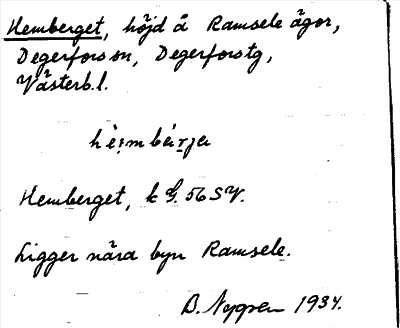 Hemberget, höjd å Ramsele ägor,
Degerfors sn, Degerfors tg,
Västerb.l.
Hemberget, k G. 56 SV.
Ligger nära byn Ramsele.
B. Nygren 1934.